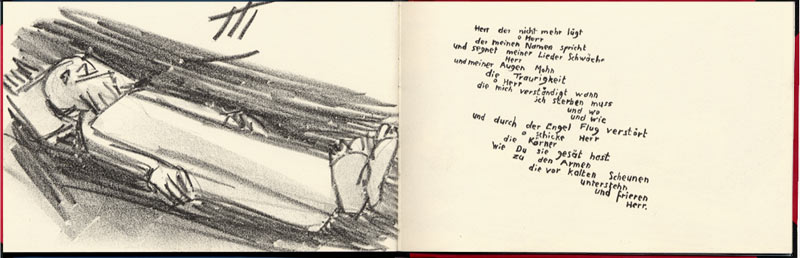 Herr der nicht mehr lügt
o Herr
der meinen Namen spricht
und segnet meiner Lieder Schwäche
Herr
und meiner Augen Mohn
die Traurigkeit
o Herr
die mich verständigt wann
ich sterben muss
und wo
und wie
und durch der Engel Flug verstört
o schicke Herr
die Körner
wie Du sie gesät hast
zu den Armen
die vor kalten Scheunen
unterstehn
und frieren
Herr.